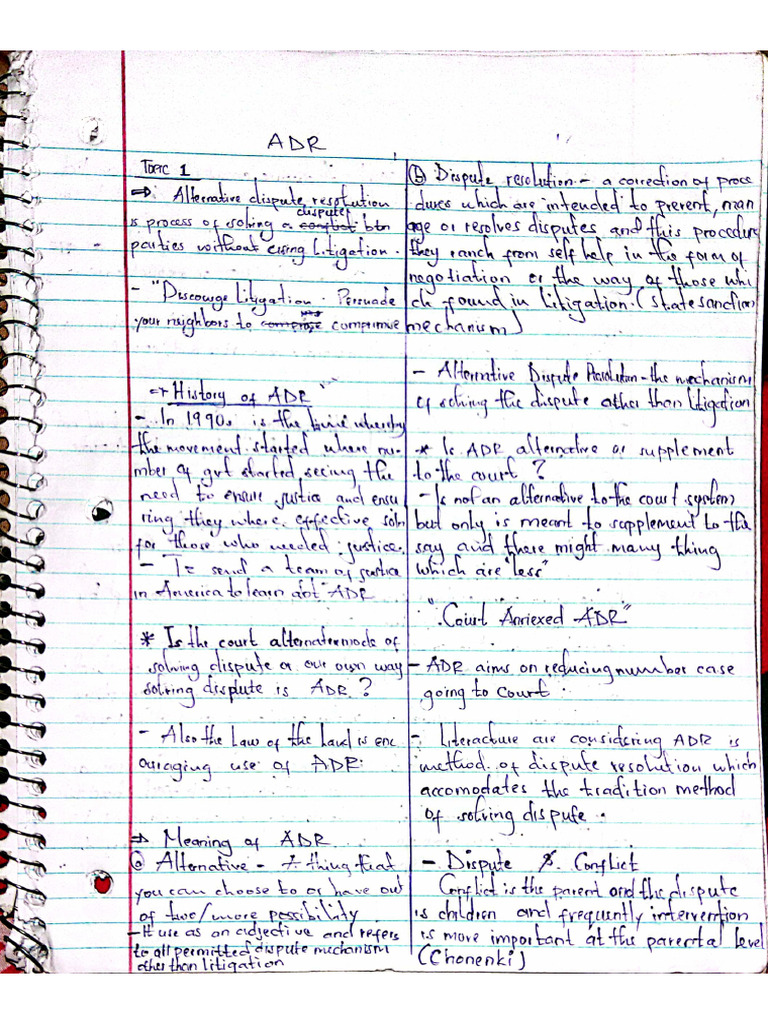 ADR
Topic 1
⇒ Alternative dispute resolution
dispute
is process of solving a conflict btn
parties without using Litigation.
- "Discourge Litigation. Persuade
your neighbors to comprimise
⇒ History of ADR
- In 1990s is the time whereby
the movement started where nu-
mber of gvt started seeing the
need to ensure justice and ensu
ring they where effective soln
for those who needed justice.
- Tz send a team of justice
in America to learn abt ADR
* Is the court alternate mode of
solving dispute or our own way
solving dispute is ADR?
- Also the Law of the Land is enc
ouraging use of ADR.
⇒ Meaning of ADR
ⓐ Alternative - A thing that
you can choose to or have out
of two/more possibility
- It use as an adjective and refers
to all permitted dispute mechanism
other than litigation
ⓑ Dispute resolution - a correction of proce
dures which are intended to prevent, man
age or resolves disputes and this procedure
they ranch from self help in the form of
negotiation or the way of those whi
ch found in litigation. (state sanction
mechanism)
- Alternative Dispute Resolution - the mechanism
of solving the dispute other than litigation
* Is ADR alternative or supplement
to the court?
- Is not an alternative to the court system
but only is meant to supplement to the
say and there might many thing
which are "less"
"Court Annexed ADR"
- ADR aims on reducing number case
going to court.
- Literacture are considering ADR is
method of dispute resolution which
accomodates the tradition method
of solving dispute.
- Dispute Vs. Conflict
Conflict is the parent and the dispute
is children and frequently intervention
is more important at the parental level
(Chonenki)